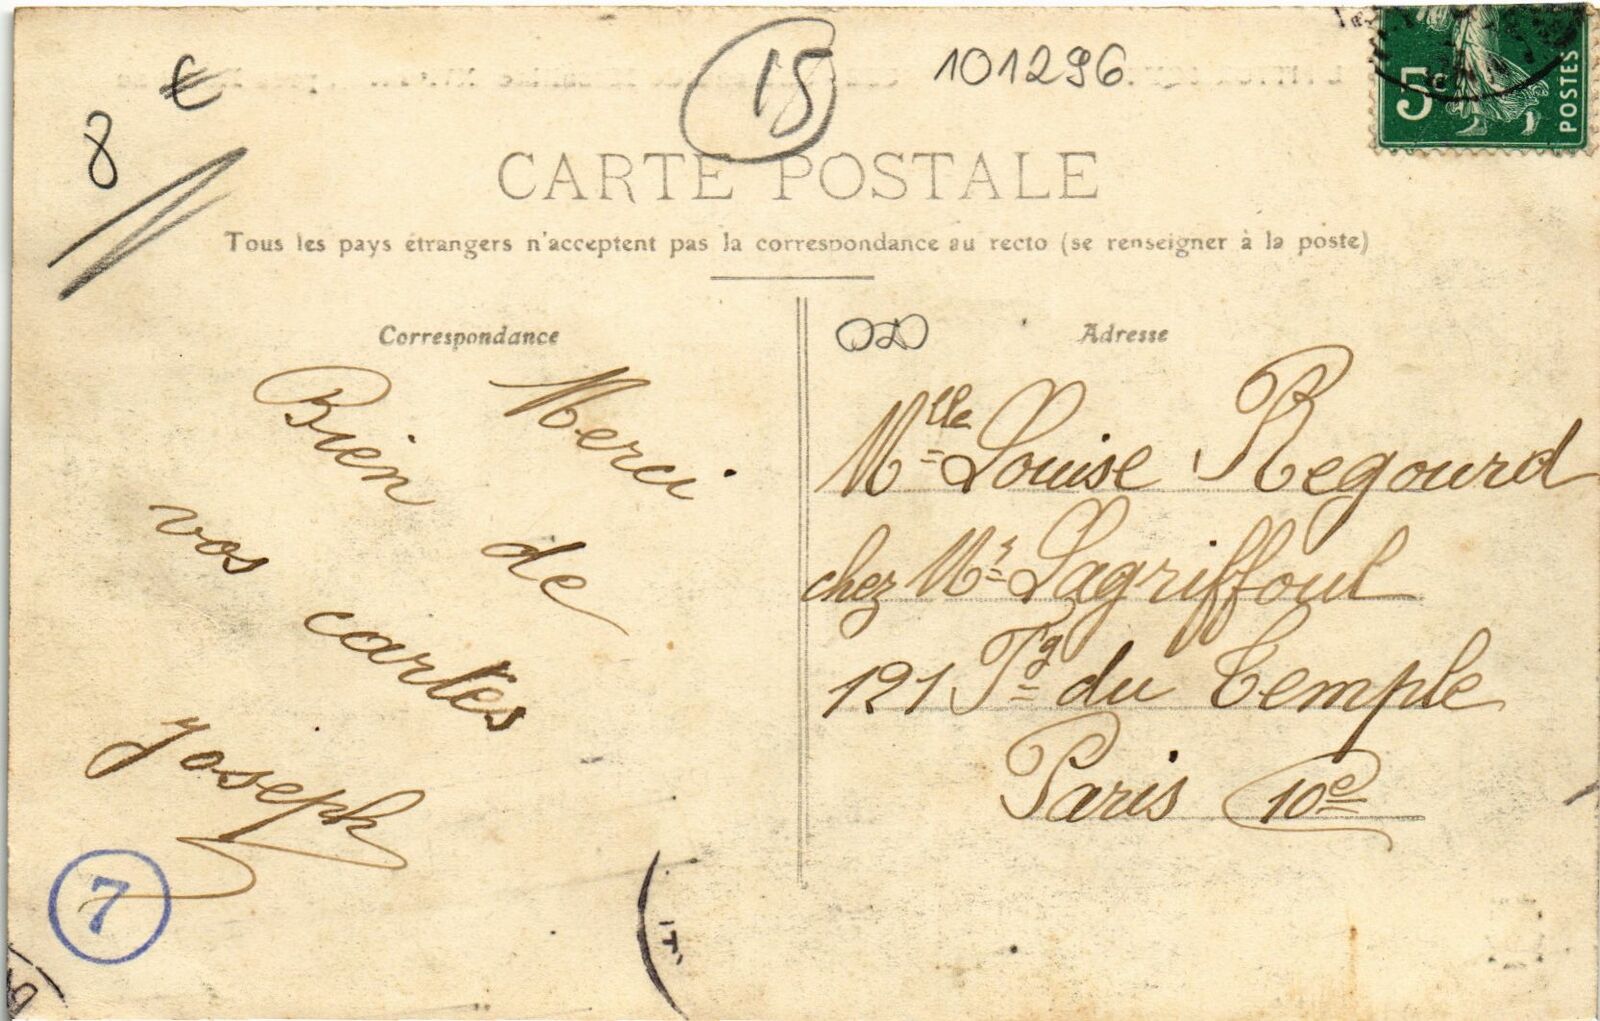 8 €
15
101296
5c
POSTES
CARTE POSTALE
Tous les pays étrangers n'acceptent pas la correspondance au recto (se renseigner à la poste)
Correspondance
Merci
Bien de
vos cartes
Joseph
7
Adresse
Mlle Louise Regourd
chez Mr Lagriffoul
121 Fg du Temple
Paris 10e